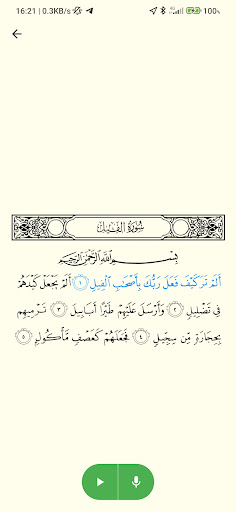 16:21 | 0.3KB/s
100%
سُورَةُ الفِيلِ
بِسْمِ اللَّهِ الرَّحْمَٰنِ الرَّحِيمِ
أَلَمْ تَرَ كَيْفَ فَعَلَ رَبُّكَ بِأَصْحَابِ الْفِيلِ ١ أَلَمْ يَجْعَلْ كَيْدَهُمْ
فِي تَضْلِيلٍ ٢ وَأَرْسَلَ عَلَيْهِمْ طَيْرًا أَبَابِيلَ ٣ تَرْمِيهِم
بِحِجَارَةٍ مِّن سِجِّيلٍ ٤ فَجَعَلَهُمْ كَعَصْفٍ مَّأْكُولٍ ٥